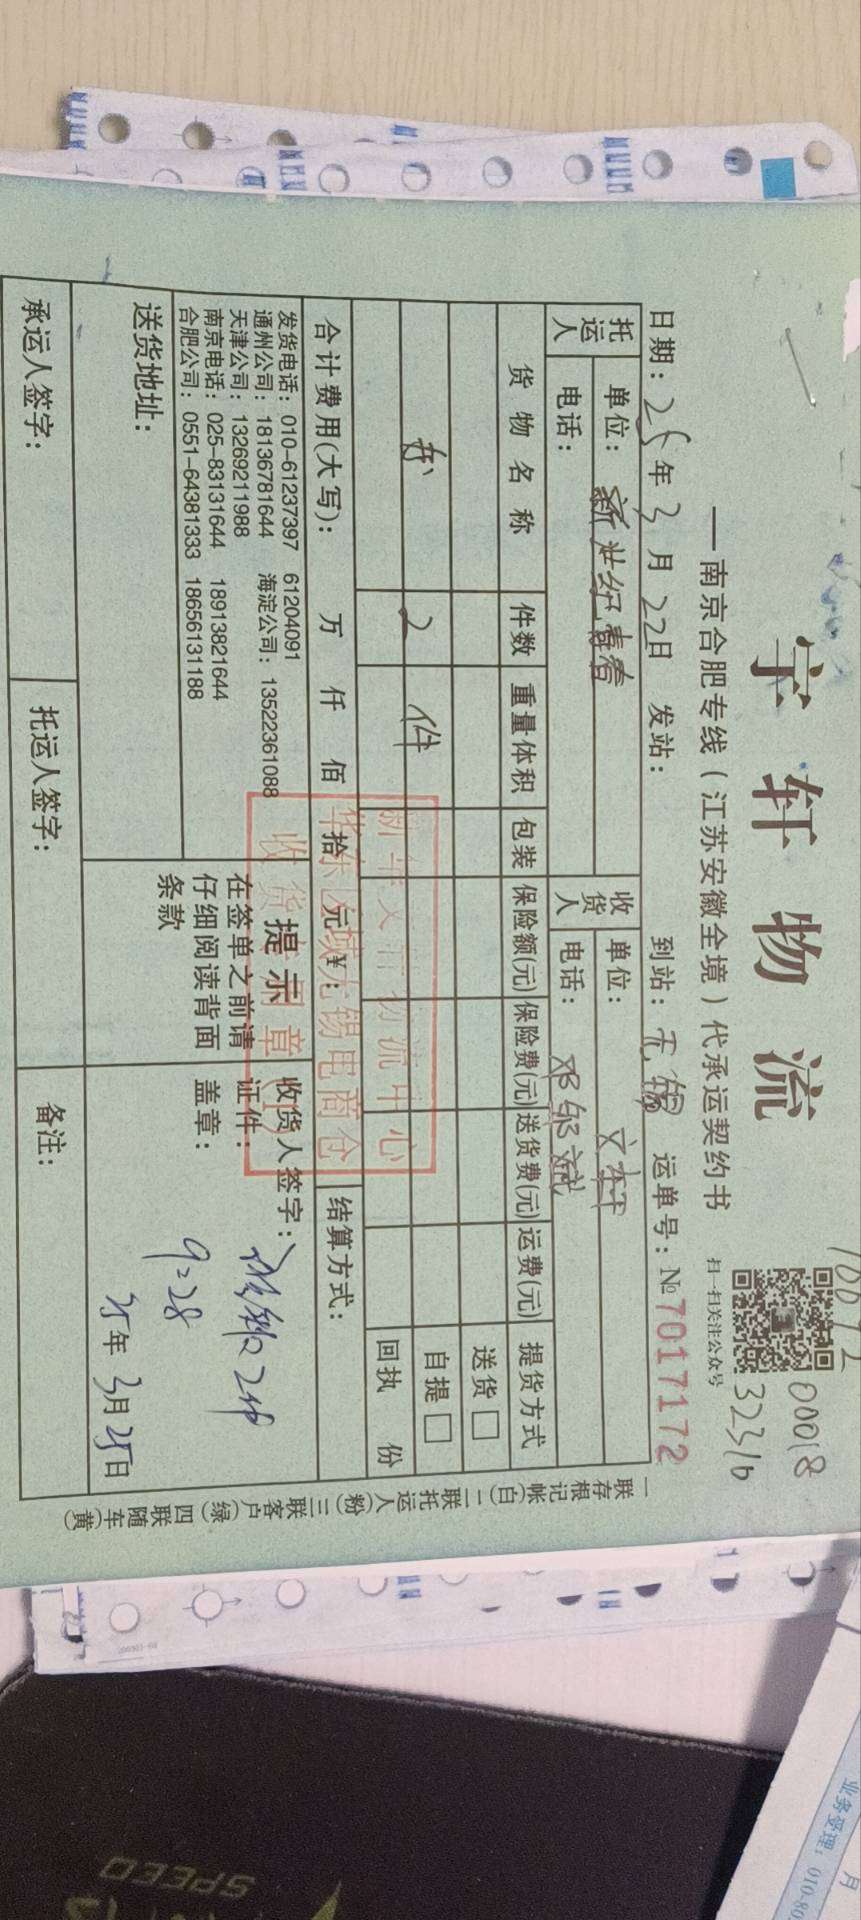 宇轩物流
—南京合肥专线（江苏安徽全境）代承运契约书
扫一扫关注公众号
10072
00018
32316
日期：25年3月22日 发站： 到站：无锡 运单号：№7017172
托运人 单位：新世纪青春 收货人 单位：文轩
电话： 电话：邓邹斌
货物名称 件数 重量体积 包装 保险额(元) 保险费(元) 送货费(元) 运费(元) 提货方式
送货□
书 2件 自提□
回执 份
合计费用(大写)： 万 仟 佰 拾 元 ¥： 结算方式：
发货电话：010-61237397 61204091
通州公司：18136781644 海淀公司：13522361088
天津公司：13269211988
南京电话：025-83131644 18913821644
合肥公司：0551-64381333 18656131188
提示
在签单之前请
仔细阅读背面
条款
收货人签字：
证件：
盖章：
9:28
25年3月25日
送货地址：
承运人签字： 托运人签字： 备注：
一联存根记帐(白) 二联托运人(粉) 三联客户(绿) 四联随车(黄)
新华文轩物流中心
华东区域无锡电商仓
收货专用章
业务受理：010-80
月
SPEED